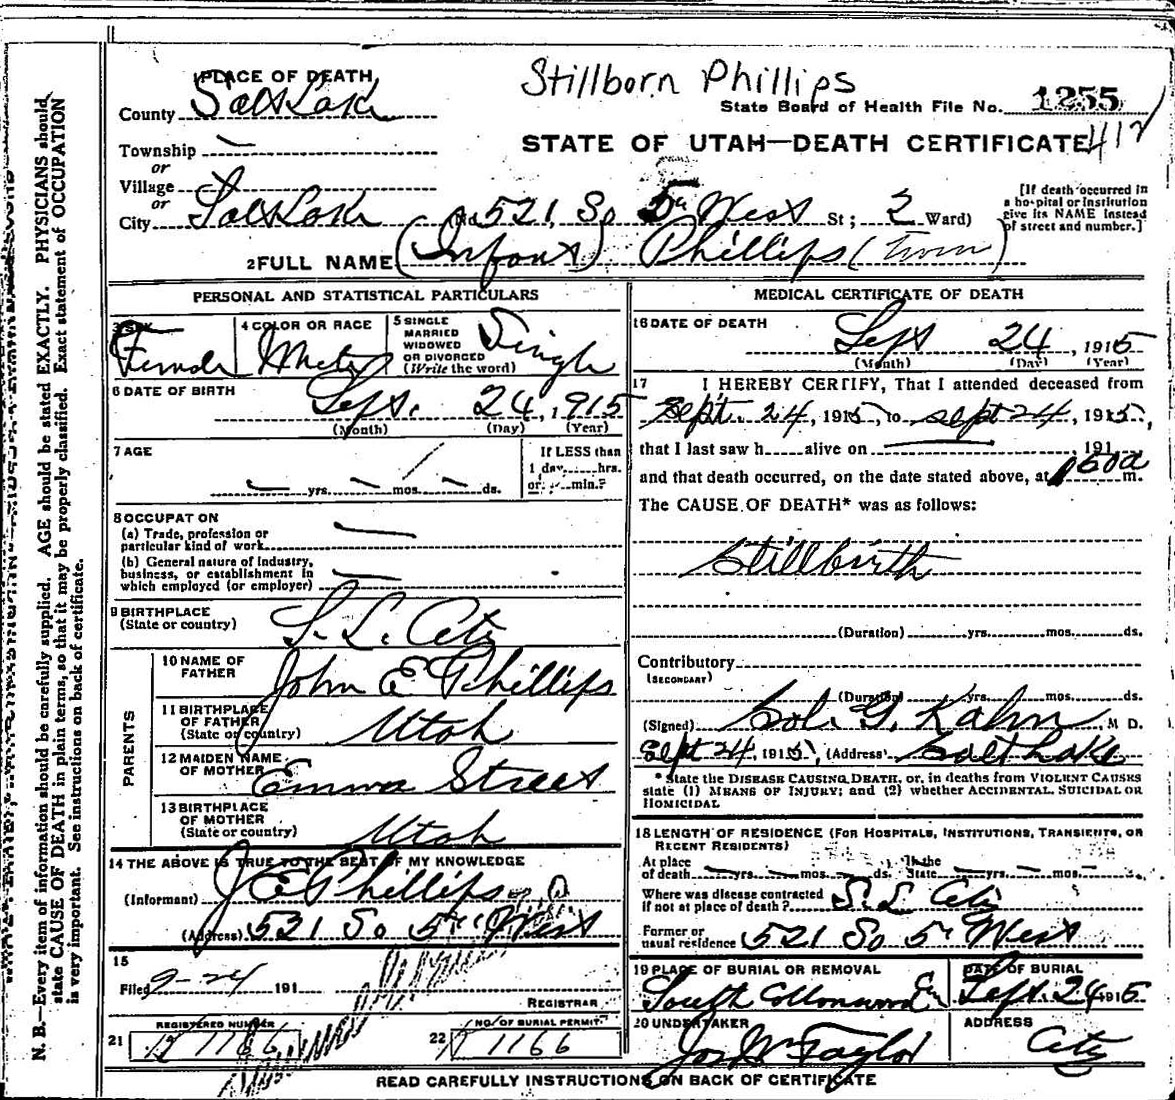 Stillborn Phillips
State Board of Health File No. 1255
412
STATE OF UTAH—DEATH CERTIFICATE
PLACE OF DEATH
County Salt Lake
Township —
or
Village
or
City Salt Lake No 521 So 5th West St; 2 Ward)
[If death occurred in
a hospital or Institution
give its NAME instead
of street and number.]
2 FULL NAME (Infant) Phillips (Twin)
PERSONAL AND STATISTICAL PARTICULARS
3 SEX Female
4 COLOR OR RACE White
5 SINGLE MARRIED WIDOWED OR DIVORCED (Write the word) Single
6 DATE OF BIRTH Sept. 24, 1915
(Month) (Day) (Year)
7 AGE — yrs. — mos. — ds.
If LESS than
1 day......hrs.
or......min.?
8 OCCUPATION
(a) Trade, profession or
particular kind of work —
(b) General nature of Industry,
business, or establishment in
which employed (or employer) —
9 BIRTHPLACE
(State or country) S. L. City
PARENTS
10 NAME OF
FATHER John E Phillips
11 BIRTHPLACE
OF FATHER
(State or country) Utah
12 MAIDEN NAME
OF MOTHER Emma Street
13 BIRTHPLACE
OF MOTHER
(State or country) Utah
14 THE ABOVE IS TRUE TO THE BEST OF MY KNOWLEDGE
(Informant) J E Phillips
(Address) 521 So 5th West
15
Filed 9-24 191
REGISTRAR
21 REGISTERED NUMBER 1166
22 NO. OF BURIAL PERMIT 1166
MEDICAL CERTIFICATE OF DEATH
16 DATE OF DEATH Sept 24, 1915
(Month) (Day) (Year)
17 I HEREBY CERTIFY, That I attended deceased from
Sept. 24, 1915, to Sept 24, 1915,
that I last saw h......alive on — 191
and that death occurred, on the date stated above, at m.
The CAUSE OF DEATH* was as follows:
Stillbirth
(Duration) yrs. mos. ds.
Contributory
(SECONDARY)
(Duration) yrs. mos. ds.
(Signed) Sol. G. Kahn M D.
Sept 24, 1915, (Address) Salt Lake
*State the DISEASE CAUSING DEATH, or, in deaths from VIOLENT CAUSES
state (1) MEANS OF INJURY; and (2) whether ACCIDENTAL, SUICIDAL OR
HOMICIDAL
18 LENGTH OF RESIDENCE (FOR HOSPITALS, INSTITUTIONS, TRANSIENTS, OR
RECENT RESIDENTS)
At place
of death — yrs. — mos. — ds. In the State — yrs. — mos.
Where was disease contracted
If not at place of death? S. L City
Former or
usual residence 521 So 5th West
19 PLACE OF BURIAL OR REMOVAL
South Cottonwood
DATE OF BURIAL
Sept. 24 1915
20 UNDERTAKER
Jos Wm Taylor
ADDRESS
City
READ CAREFULLY INSTRUCTIONS ON BACK OF CERTIFICATE
N. B.—Every item of information should be carefully supplied. AGE should be stated EXACTLY. PHYSICIANS should
state CAUSE OF DEATH in plain terms, so that it may be properly classified. Exact statement of OCCUPATION
is very important. See instructions on back of certificate.